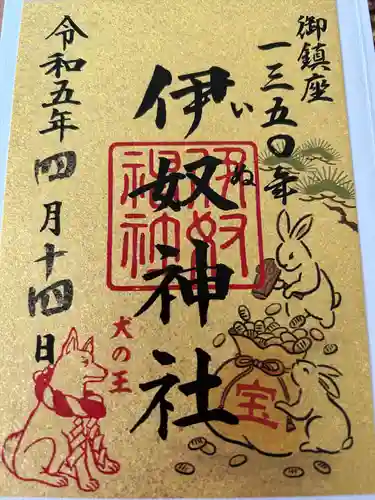 御鎮座
一三五〇年
伊奴神社
いぬ
伊奴神社
犬の王
宝
令和五年四月十四日